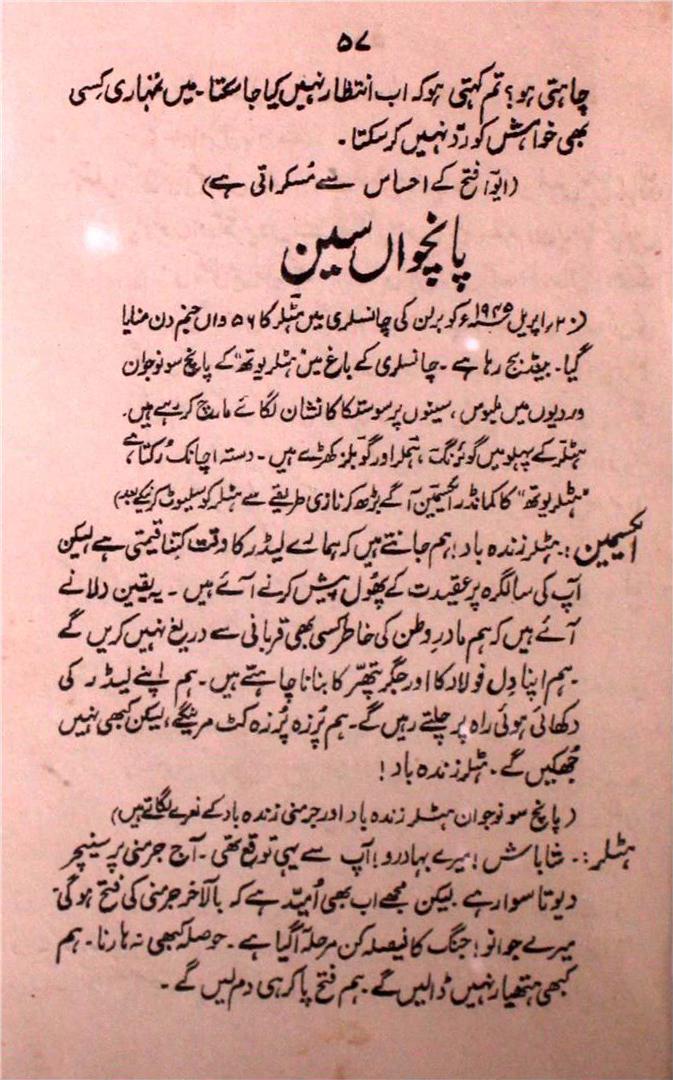 ۵۷
چاہتی ہو؟ تم کہتی ہو کہ اب انتظار نہیں کیا جا سکتا۔ میں تمہاری کسی
بھی خواہش کو ردّ نہیں کر سکتا۔
(ایوا فتح کے احساس سے مُسکراتی ہے)
پانچواں سین
(۲۰؍اپریل ۱۹۴۵ء کو برلن کی چانسلری میں ہٹلر کا ۵۶ واں جنم دن منایا
گیا۔ بینڈ بج رہا ہے۔ چانسلری کے باغ میں ’’ہٹلر یوتھ‘‘ کے پانچ سو نوجوان
وردیوں میں ملبوس، سینوں پر سوستکا کا نشان لگائے مارچ کر رہے ہیں۔
ہٹلر کے پہلو میں گوئرنگ، ہملر اور گوبلز کھڑے ہیں۔ دستہ اچانک رُکتا ہے
’’ہٹلر یوتھ‘‘ کا کمانڈر ایکسمین آگے بڑھ کر نازی طریقے سے ہٹلر کو سلیوٹ کرنیکے بعد)
ایکسمین:۔ ہٹلر زندہ باد! ہم جانتے ہیں کہ ہمارے لیڈر کا وقت کتنا قیمتی ہے لیکن
آپ کی سالگرہ پر عقیدت کے پھُول پیش کرنے آئے ہیں۔ یہ یقین دلانے
آئے ہیں کہ ہم مادرِ وطن کی خاطر کسی بھی قربانی سے دریغ نہیں کریں گے
۔ہم اپنا دِل فولاد کا اور جگر پتھّر کا بنانا چاہتے ہیں۔ ہم اپنے لیڈر کی
دکھائی ہوئی راہ پر چلتے رہیں گے۔ ہم پُرزہ پُرزہ کٹ مرینگے، لیکن کبھی نہیں
جھُکیں گے۔ ہٹلر زندہ باد!
(پانچ سو نوجوان ہٹلر زندہ باد اور جرمنی زندہ باد کے نعرے لگاتے ہیں)
ہٹلر:۔ شاباش! میرے بہادرو! آپ سے یہی توقع تھی۔ آج جرمنی پر سنیچر
دیوتا سوار ہے۔ لیکن مجھے اب بھی اُمیّد ہے کہ بالآخر جرمنی کی فتح ہوگی
میرے جوانو! جنگ کا فیصلہ کن مرحلہ آ گیا ہے۔ حوصلہ کبھی نہ ہارنا۔ ہم
کبھی ہتھیار نہیں ڈالیں گے۔ ہم فتح پا کر ہی دم لیں گے۔